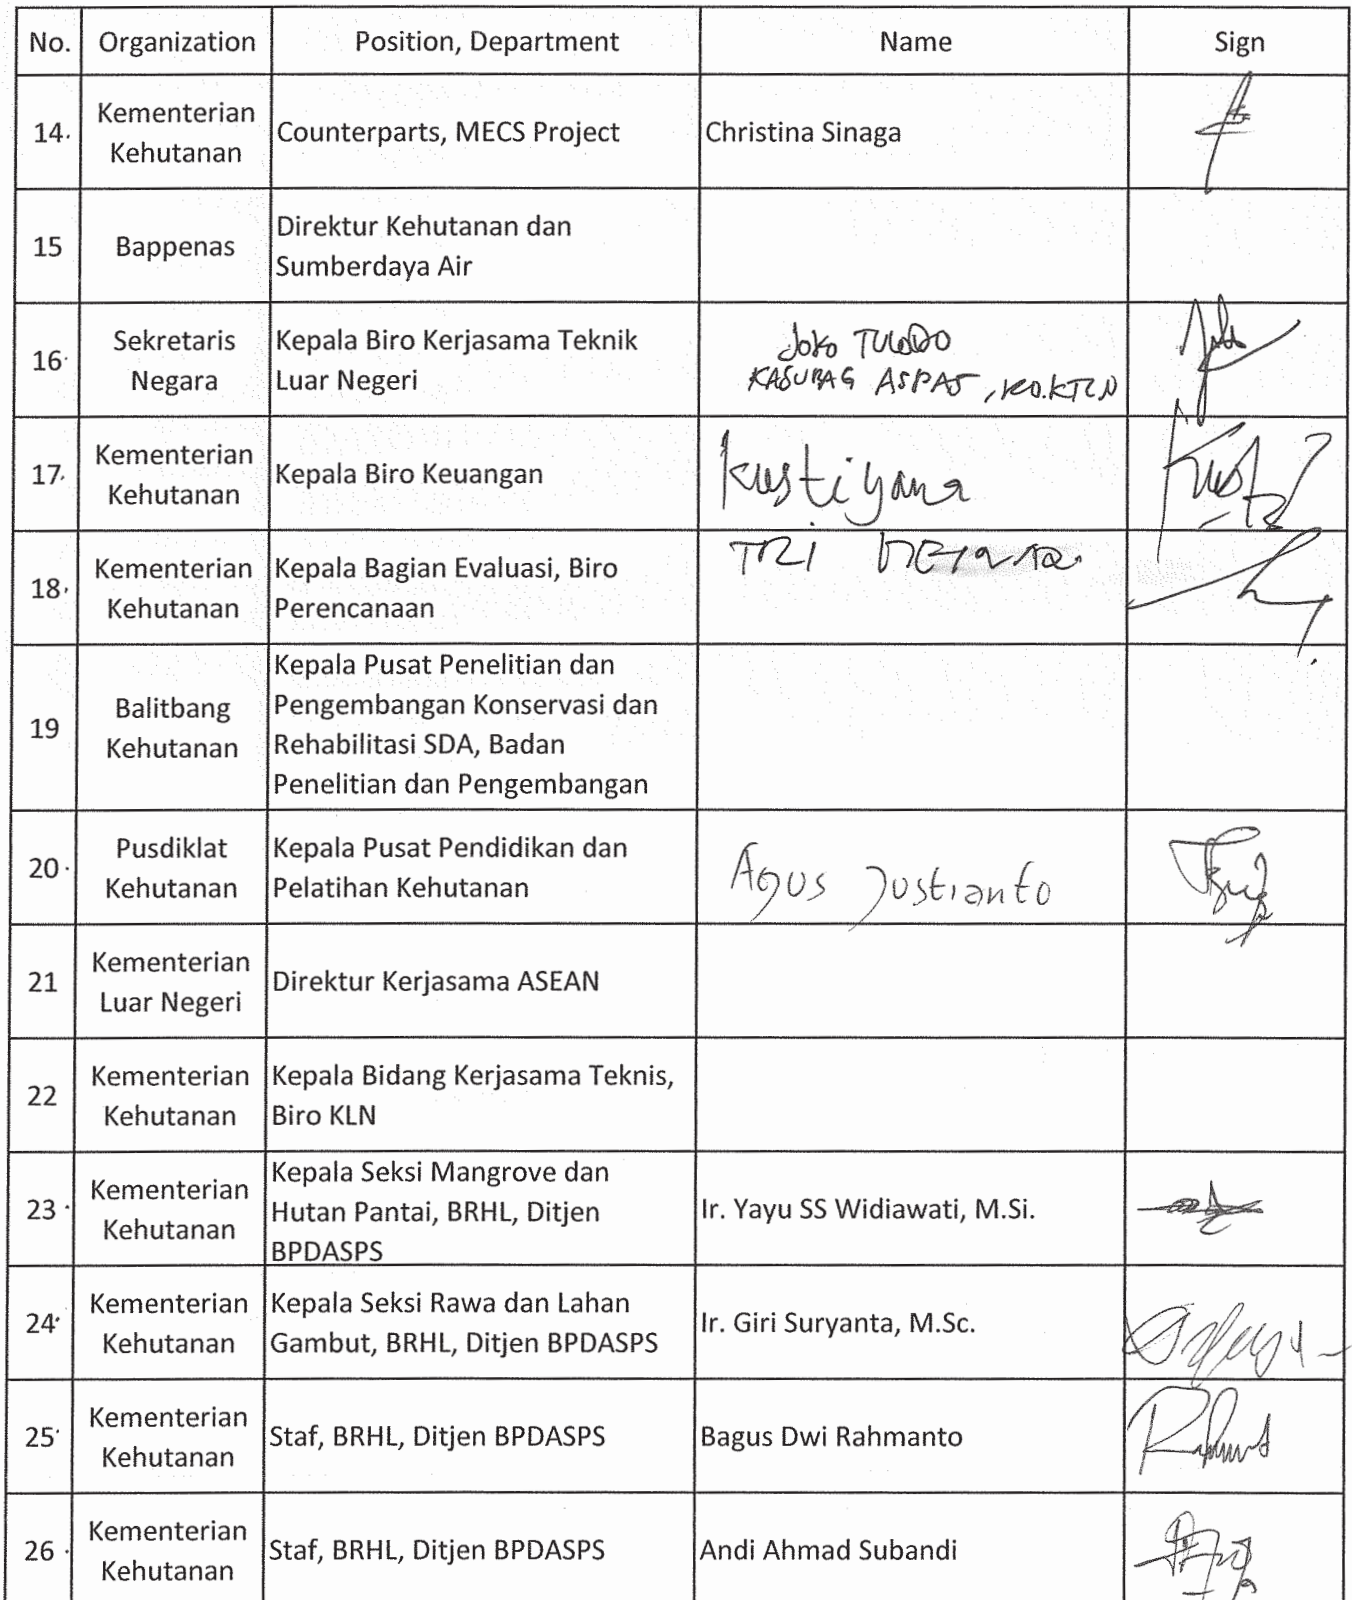 No. Organization Position, Department Name Sign
14. Kementerian Kehutanan Counterparts, MECS Project Christina Sinaga
15 Bappenas Direktur Kehutanan dan
Sumberdaya Air
16. Sekretaris Negara Kepala Biro Kerjasama Teknik
Luar Negeri
Joko
KASUBAG
17. Kementerian Kehutanan Kepala Biro Keuangan Kustiyana
18. Kementerian Kehutanan Kepala Bagian Evaluasi, Biro
Perencanaan
TRI
19 Balitbang Kehutanan Kepala Pusat Penelitian dan
Pengembangan Konservasi dan
Rehabilitasi SDA, Badan
Penelitian dan Pengembangan
20. Pusdiklat Kehutanan Kepala Pusat Pendidikan dan
Pelatihan Kehutanan
Agus Justianto
21 Kementerian Luar Negeri Direktur Kerjasama ASEAN
22 Kementerian Kehutanan Kepala Bidang Kerjasama Teknis,
Biro KLN
23. Kementerian Kehutanan Kepala Seksi Mangrove dan
Hutan Pantai, BRHL, Ditjen
BPDASPS
Ir. Yayu SS Widiawati, M.Si.
24. Kementerian Kehutanan Kepala Seksi Rawa dan Lahan
Gambut, BRHL, Ditjen BPDASPS
Ir. Giri Suryanta, M.Sc.
25. Kementerian Kehutanan Staf, BRHL, Ditjen BPDASPS Bagus Dwi Rahmanto
26. Kementerian Kehutanan Staf, BRHL, Ditjen BPDASPS Andi Ahmad Subandi